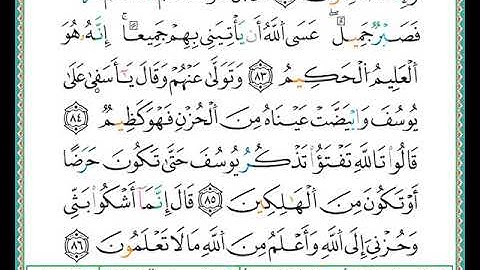 فَصَبْرٌ جَمِيلٌ ۖ عَسَى اللَّهُ أَن يَأْتِيَنِي بِهِمْ جَمِيعًا ۚ إِنَّهُ هُوَ
الْعَلِيمُ الْحَكِيمُ ٨٣ وَتَوَلَّىٰ عَنْهُمْ وَقَالَ يَا أَسَفَىٰ عَلَىٰ
يُوسُفَ وَابْيَضَّتْ عَيْنَاهُ مِنَ الْحُزْنِ فَهُوَ كَظِيمٌ ٨٤
قَالُوا تَاللَّهِ تَفْتَؤُا تَذْكُرُ يُوسُفَ حَتَّىٰ تَكُونَ حَرَضًا
أَوْ تَكُونَ مِنَ الْهَالِكِينَ ٨٥ قَالَ إِنَّمَا أَشْكُوا بَثِّي
وَحُزْنِي إِلَى اللَّهِ وَأَعْلَمُ مِنَ اللَّهِ مَا لَا تَعْلَمُونَ ٨٦